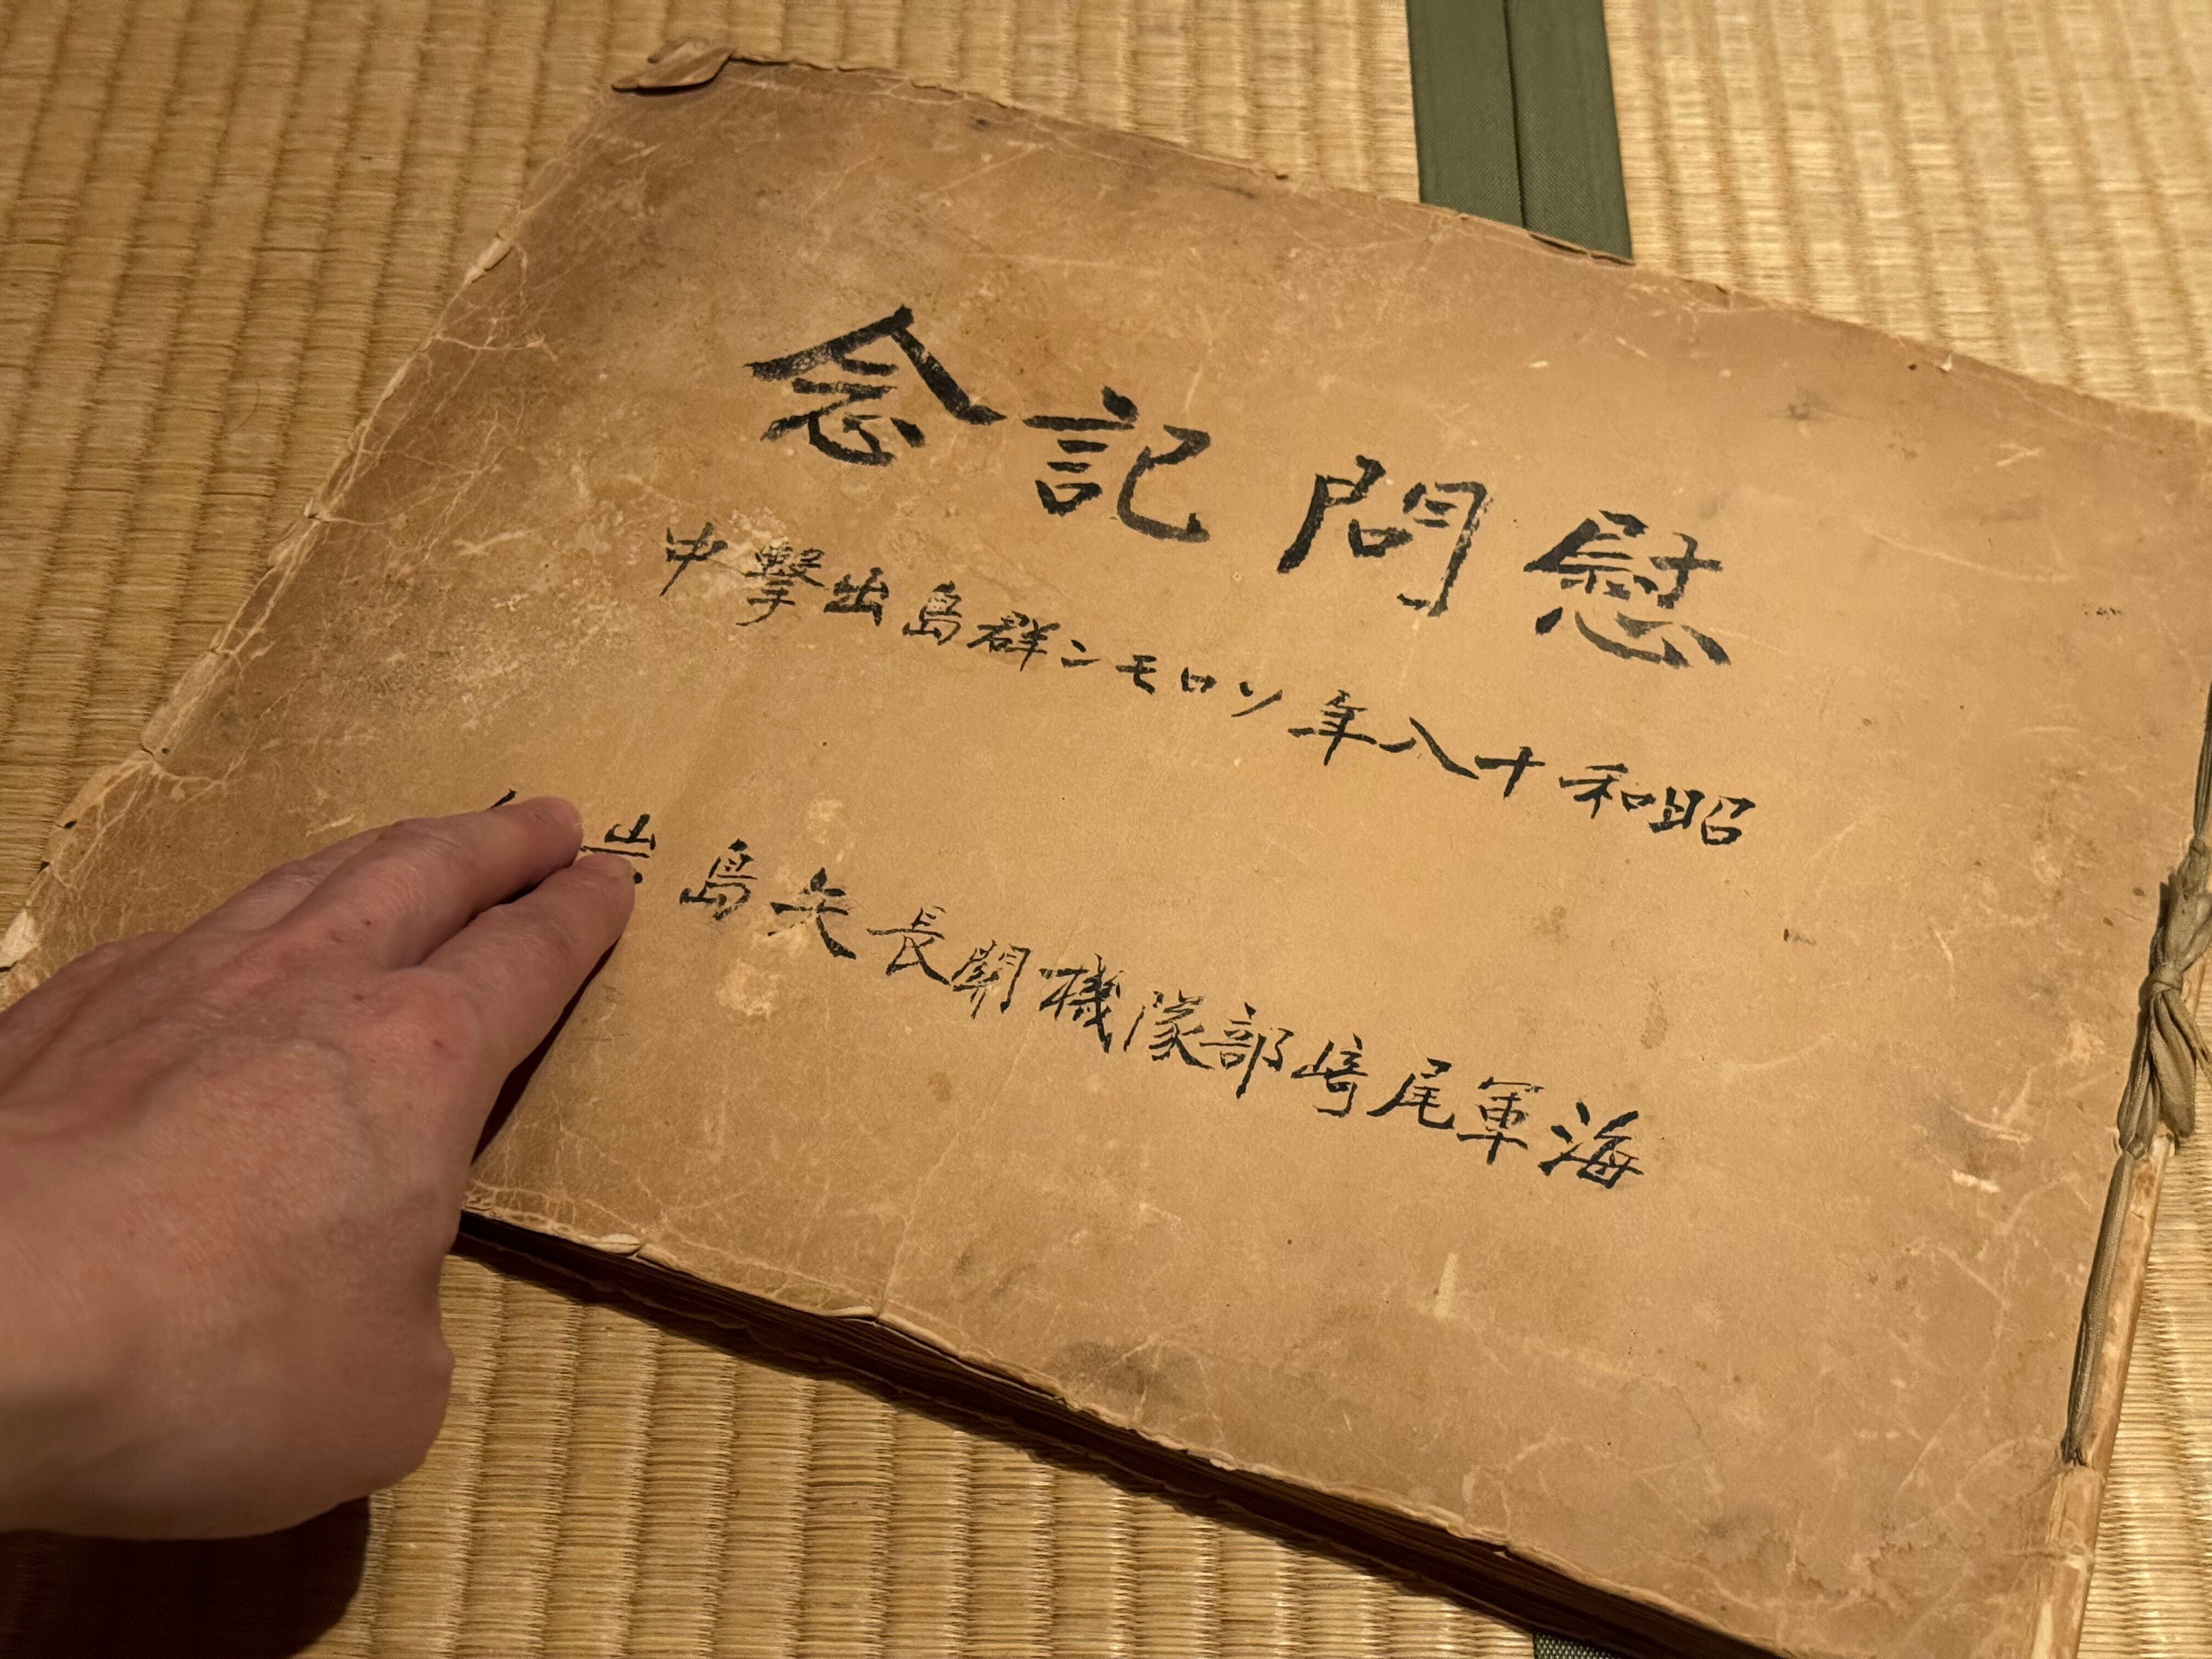 慰問記念
昭和十八年ソロモン群島出撃中
海軍尾﨑部隊機関長矢島